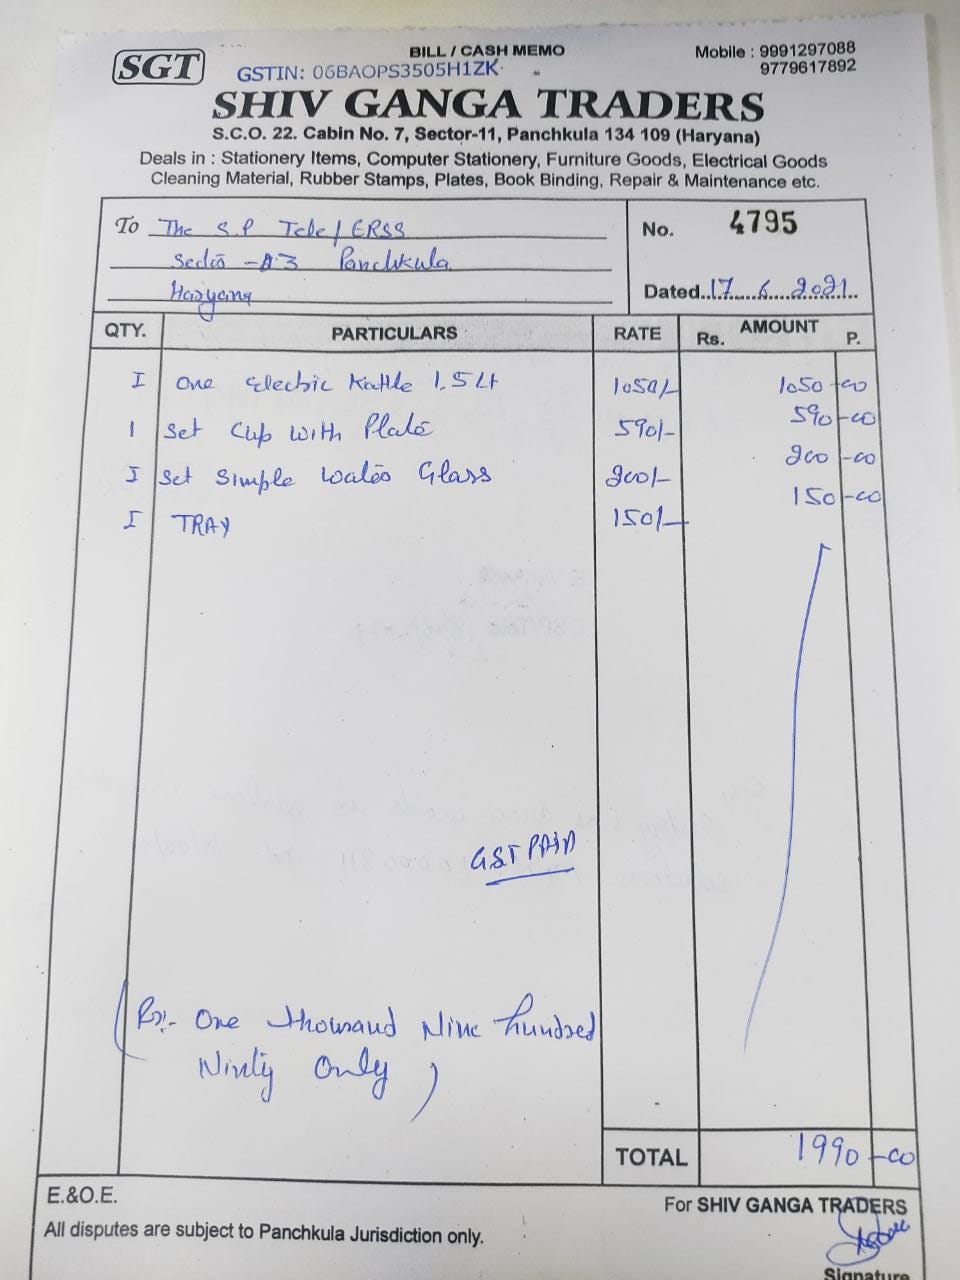 SGT
BILL / CASH MEMO
Mobile : 9991297088
9779617892
GSTIN: 06BAOPS3505H1ZK
SHIV GANGA TRADERS
S.C.O. 22. Cabin No. 7, Sector-11, Panchkula 134 109 (Haryana)
Deals in : Stationery Items, Computer Stationery, Furniture Goods, Electrical Goods
Cleaning Material, Rubber Stamps, Plates, Book Binding, Repair & Maintenance etc.
To The S.P Tele/ERSS
No. 4795
Sector -3 Panchkula
Haryana
Dated 17 6 2021
QTY. PARTICULARS RATE AMOUNT
Rs. P.
1 One Electric Kattle 1.5 Lt 1050/- 1050-00
1 Set Cup with Plate 590/- 590-00
1 Set Simple Water Glass 200/- 200-00
1 TRAY 150/- 150-00
GST PAID
(Rs:- One thousand Nine hundred
Ninty Only)
TOTAL 1990-00
E.&O.E.
For SHIV GANGA TRADERS
All disputes are subject to Panchkula Jurisdiction only.
Signature